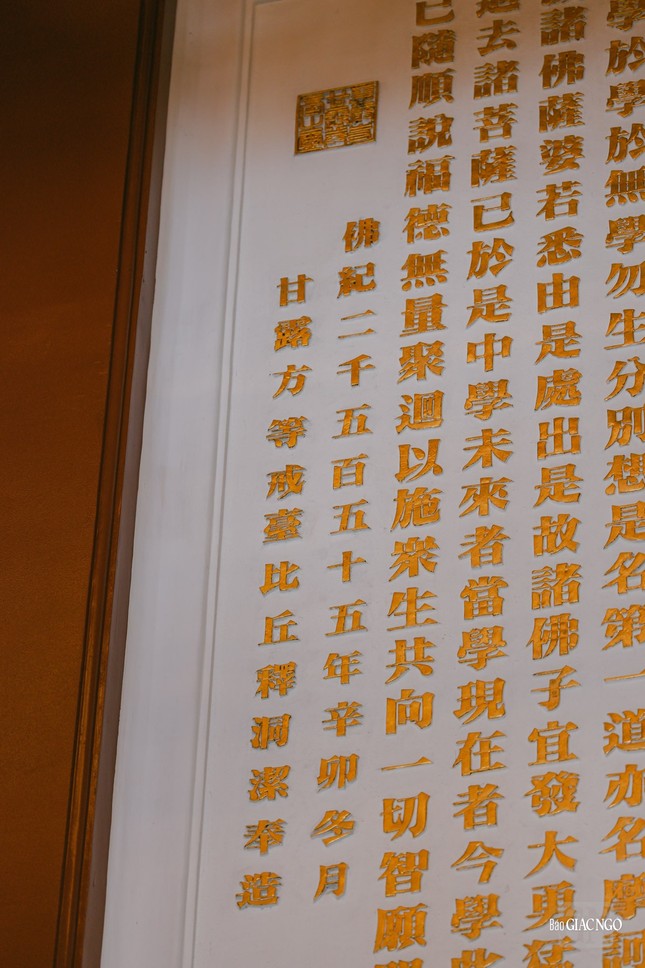 學於學於無學勿生分別想是名第一道亦名摩訶
諸佛薩婆若悉由是處出是故諸佛子宜發大勇猛
去諸菩薩已於是中學未來者當學現在者今學此
已隨順說福德無量聚迴以施衆生共向一切智願
佛紀二千五百五十五年辛卯冬月
甘露方等戒臺比丘釋洞潔奉造
Báo GIÁC NGỘ